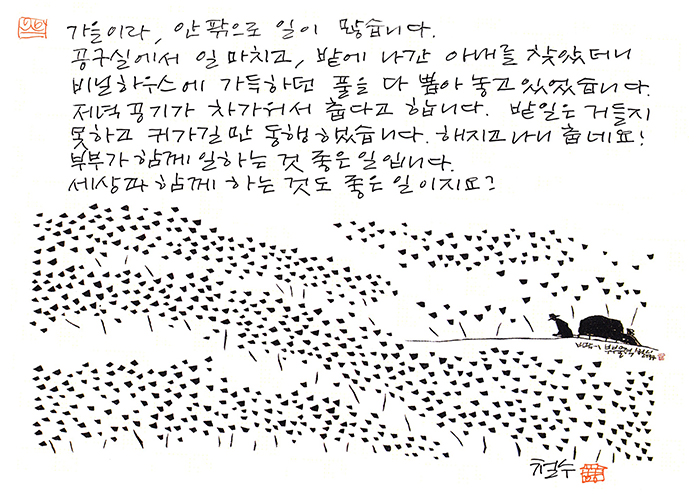 가을이라, 안팎으로 일이 많습니다.
공구실에서 일 마치고, 밭에 나간 아내를 찾았더니
비닐하우스에 가득하던 풀을 다 뽑아 놓고 있었습니다.
저녁 공기가 차가워서 춥다고 합니다. 밭일은 거들지
못하고 귀가길만 동행했습니다. 해지고 나니 춥네요!
부부가 함께 일하는 것 좋은 일입니다.
세상과 함께 하는 것도 좋은 일이지요?
철수